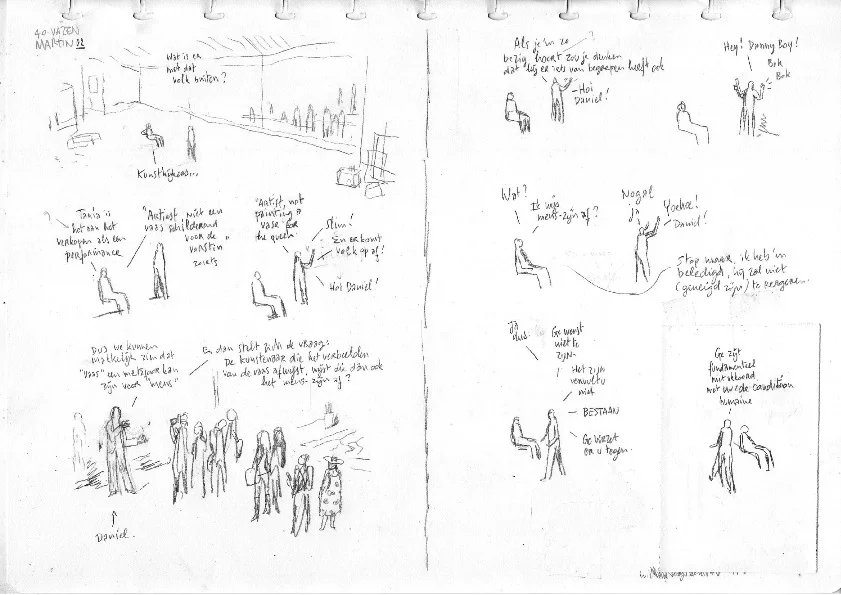 40-VAZEN
MARTIN 32
Wat is er
met dat
volk buiten?
Kunstkijkers...
Tania is
het aan het
verkopen als een
performance
"Artiest, niet een
vaas schilderend
voor de
vorstin"
zoiets
"Artist, not
painting a
vase for
the queen"
Slim!
En er komt
volk op af!
Hoi Daniel!
Dus we kunnen
makkelijk zien dat
"vaas" een metafoor kan
zijn voor "mens"
En dan stelt zich de vraag:
De kunstenaar die het verbeelden
van de vaas afwijst, wijst die dan ook
het mens-zijn af?
Daniel.
Als je 'm zo
bezig hoort zou je denken
dat hij er iets van begrepen heeft ook
Hoi
Daniel!
Hey! Danny Boy!
Bok
Bok
Wat?
Ik mijn
mens-zijn af?
Nogal
ja
Yoehoe!
Daniel!
Stop maar, ik heb 'm
beledigd, hij zal niet
(geneigd zijn) te reageren.
Ja
dus.
Ge wenst
niet te
zijn.
Het zijn
vervult u
niet
BESTAAN
Ge verzet
er u tegen.
Ge zijt
fundamenteel
niet akkoord
met uw de condition
humaine